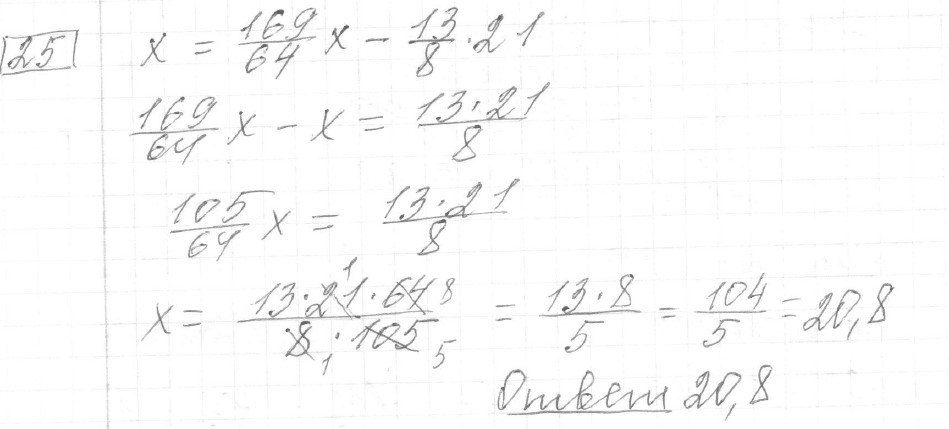 25 x = 169/64 x - 13/8 · 21
169/64 x - x = 13·21/8
105/64 x = 13·21/8
x = 13·21·64/8·105 1 8 1 5 = 13·8/5 = 104/5 = 20,8
Ответ 20,8